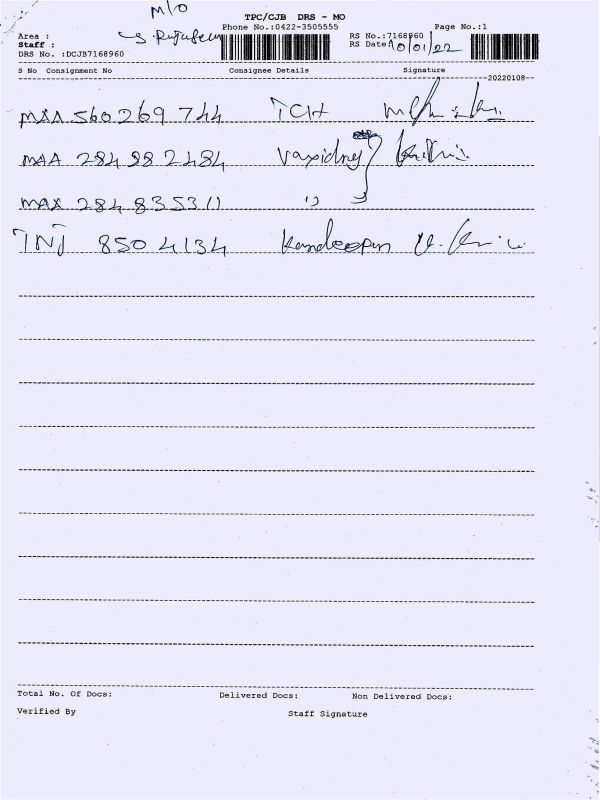 M/O
TPC/CJB DRS - MO
Phone No.:0422-3505555 Page No.:1
Area :
Staff :
RS No.:7168960
RS Date: 10/01/22
DRS No. :DCJB7168960
S No Consignment No Consignee Details Signature
20220108
MAA 560269 744 TCH
MAA 284 882484
MAA 284 835311 ,,
TNJ 850 4134 Kandeepan
Total No. Of Docs: Delivered Docs: Non Delivered Docs:
Verified By Staff Signature